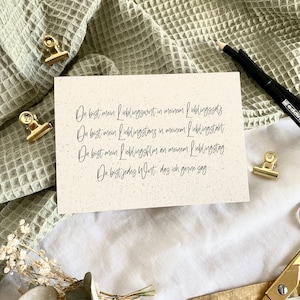 Du bist mein Lieblingswort in meinem Lieblingssatz
Du bist mein Lieblingstanz in meinem Lieblingstakt
Du bist mein Lieblingsfilm an meinem Lieblingstag
Du bist jedes Wort, das ich gerne sag